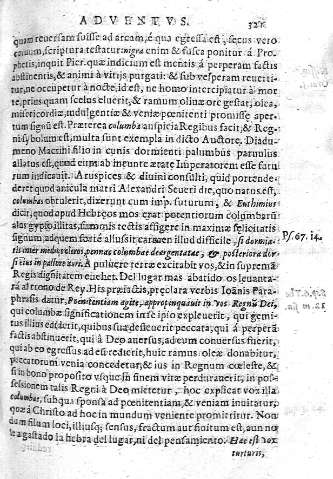 ADVENTVS. 321
quam reuersam fuisse ad arcam, é qua egressa est, secus vero
coruum, scriptura testatur: nigra enim & fusca ponitur á Pro-
phetis, inquit Pier. quæ indicium est mentis á perperam factis
abstinentis, & animi à vitijs purgati: & sub vesperam reuerti-
tur, ne occuperur à nocte, id est, ne homo intercipiatur à mor
te, prius quam scelus eluerit, & ramum oliuæ ore gestat, olea,
misericordiæ, indulgentiæ & veniæ pœnitenti promissæ aper-
tum signũ est. Præterea columba auspicia Regibus facit, & Reg-
nis, bonum est, multa sunt exempla in dicto Auctore, Diadu-
meno Macrini filio in cunis dormienti palumbus paruulus
allatus est, quod eum ab ineunte ætate Imperatorem esse futu
rum indicauit. Aruspices & diuini consulti, quid portende-
deret quod anicula matri Alexandri Seueri die, quo natus est,
columbas obtulerit, dixerunt cum imp. futurum, & Euthimius
dicit, quod apud Hebręos mos erat potentiorum columbarũ
alas
signum, ad quem fortè allusit carmen illud difficile, si dormia-
tis inter medios cleros, pennæ columbæ deargentatæ, & posteriora dor-
si eius in pallore auri. A puluere terræ excitabit vos, & in supremã
Regis dignitatem euehet. Del lugar mas abatido os leuanta-
rá al trono de Rey. His præfactis, præclara verbis Ioannis Para-
phrasis datur, Pœnitentiam agite, appropinquauit in vos Regnũ Dei,
qui columbæ significationem in se ipso expleuerit, qui gemi-
tus illius edíderit, quibus suæ defleuerit peccata, qui á perperã
factis abstinuerit, qui à Deo auersus, ad eum conuersus fuerit,
qui ab eo egressus ad
peccatorum venia concedetur, & ius in Regnum cœleste, & si
in bono proposito vsque in finem vitæ perdurauerit, in pos-
sessionem talis Regni à Deo mittetur, hoc explicat vox illa
columbæ, subqua sponsa ad pœnitentiam & veniam inuitatur,
quæ á Christo ad hoc in mundum veniente promittitur. Non
dum filum loci, illiusq; sensus, fractum aut finitum est, aun no
se á gastado la hebra del lugar, ni del pensamiento. Hæc est vox
turturis,
Ps. 67. 14.